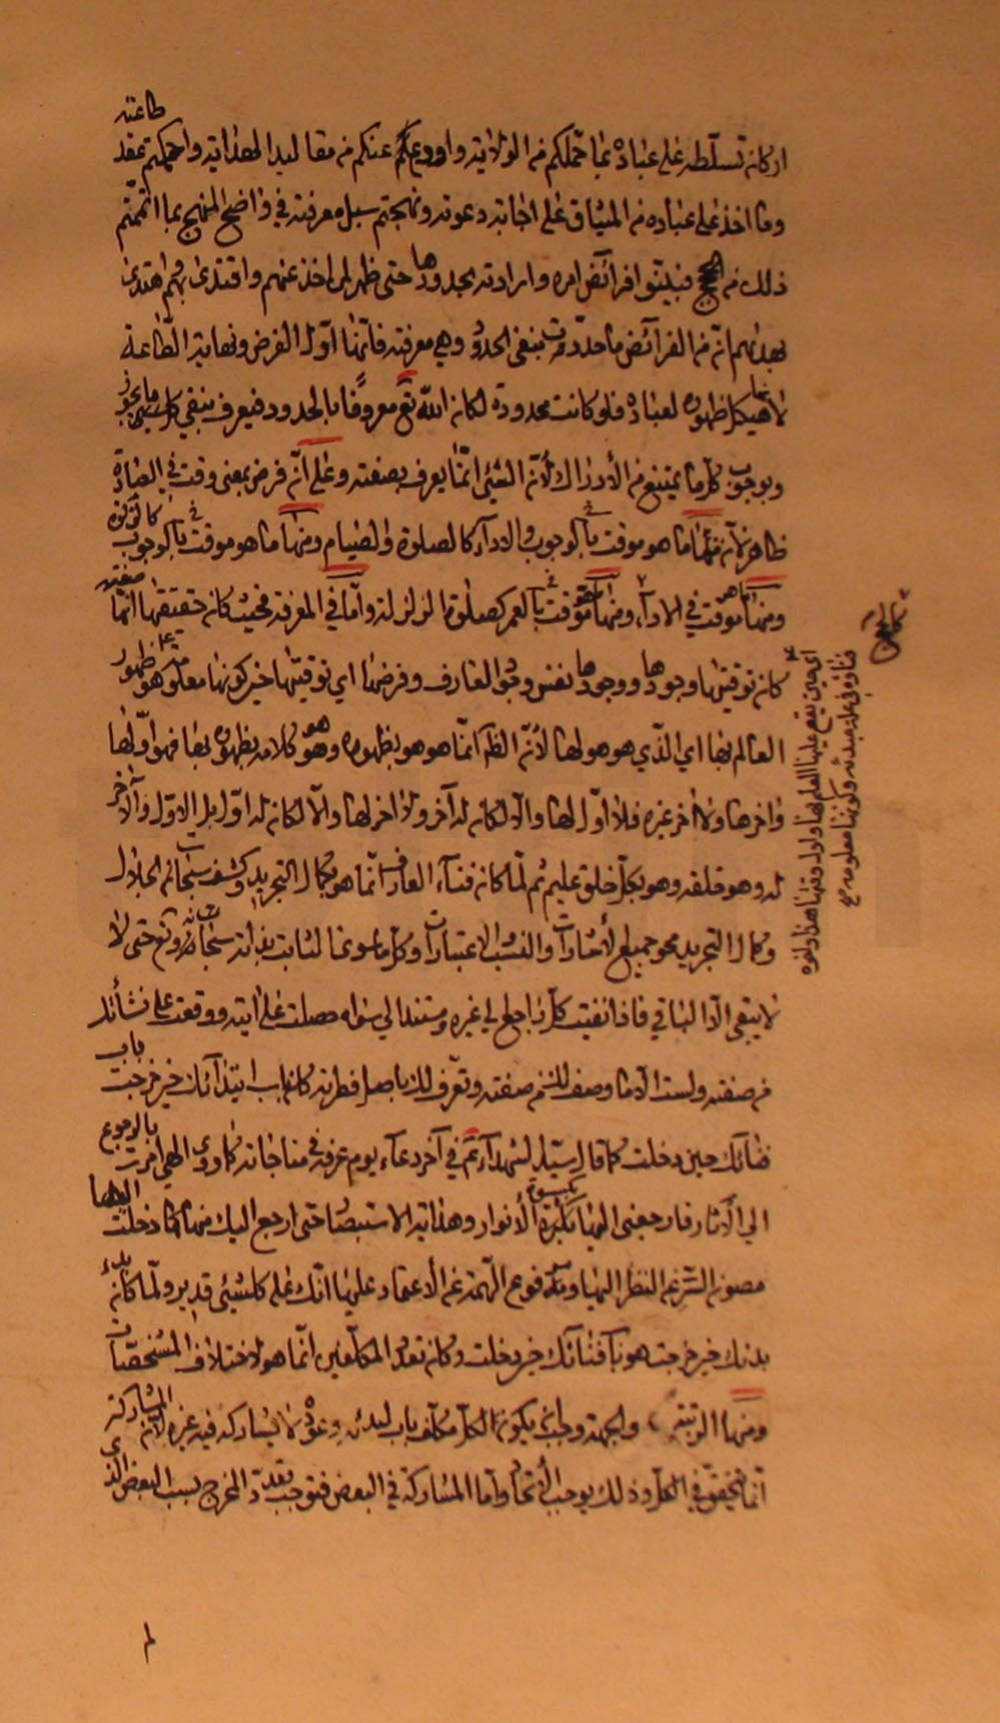 طاعته
اركان تسلّطه على عباده بما حمّلكم من الولاية واودعكم عنكم من مقاليد الهداية واحكمتم بعقد
وما اخذ على عباده من الميثاق على اجابة دعوته ونهجتم سبل معرفته في واضح المنهج بما اتممتم
ذلك من الحجج فبيّنتوا فرائض امره وارادته بحدودها حتى ظهر لمن اخذ عنهم واقتدى بهم واهتدى
بهديهم انّ من الفرائض ما حدّدت بنفي الحدود وهي معرفته فانّها اوّل الفرض ونهاية الطاعة
لانها هيكل ظهوره لعباده فلو كانت محدودة لكان الله تع معروفًا بالحدود فيعرف بنفي كل ما يجوز
وبوجوب كل ما يمتنع من الأدراك لأنّ الشيئ انّما يعرف بصفته وعلى انّ فرض بمعنى وقت في العبادة
ظاهر لأنّ منها ما هو موقت بالوجوب والاداء كالصلوة والصيام ومنها ما هو موقت بالوجوب كالزكوة
ومنها ما هو موقت في الاداء ومنها موقت بالعمر كصلوة الزلزلة وامّا في المعرفة فحيث كانت حقيقتها انّما صفته
كان توقيتها وجودها ووجودها نفس وجود العارف وفرضها اي توقيتها خير كونها معلومة هو ظهور
العالم بها اي الذي هو هو لها لأنّ الظاهر انّما هو هو بظهوره وهو كلامه بظهوره بها فهو اوّلها
واخرها ولا اخر غيره فلا اوّل لها والّا لكان له آخر ولا اخر لها والّا لكان له اوّل بل الاوّل والآخر
له وهو خلقه وهو بكلّ خلق عليم ثم لمّا كان فناء العارف انّما هو بكمال التجريد وكشف سبحات الجلال
وكمال التجريد محو جميع الأشارات والنسب الاعتبارات وكل ما سوى الثابت بذاته سبحانه وتع حتى لا
لا يبقى الّا الباقي فاذا انفيت كل راجع الى غيره ومستند الى سواه حصلت على آيته ووقعت على نشأتك
من صفته ولست الّا ما وصف لك من صفته وتعرّف لك باصل فطرته كان باب ابتدائك حين خرجت
فنائك حين دخلت كما قال سيّد الشهداء عم في آخر دعاء يوم عرفة في مناجاته كما روى الهي امرت بالرجوع
الى الآثار فارجعني اليها بكسوة الأنوار وهداية الاستبصار حتى ارجع اليك منها كما دخلت اليك منها
مصون السّرّ عن النظر اليها ومرفوع الهمّة عن الأعتماد عليها انّك على كل شيئ قدير ولمّا كان بدء
بدئك حين خرجت هو باب فنائك حين دخلت وكان تعدّد المكلّفين انّما هو لاختلاف المشخّصات
ومنها الرتبة والجهة وجب ان يكون لكل مكلّف باب لبدئه وعوده لا يشاركه فيه غيره لأنّ المشاركة
انّما تتحقّق في الكل وذلك يوجب الأتّحاد وامّا المشاركة في البعض فتوجب تعدّد المخرج بسبب البعض الذي